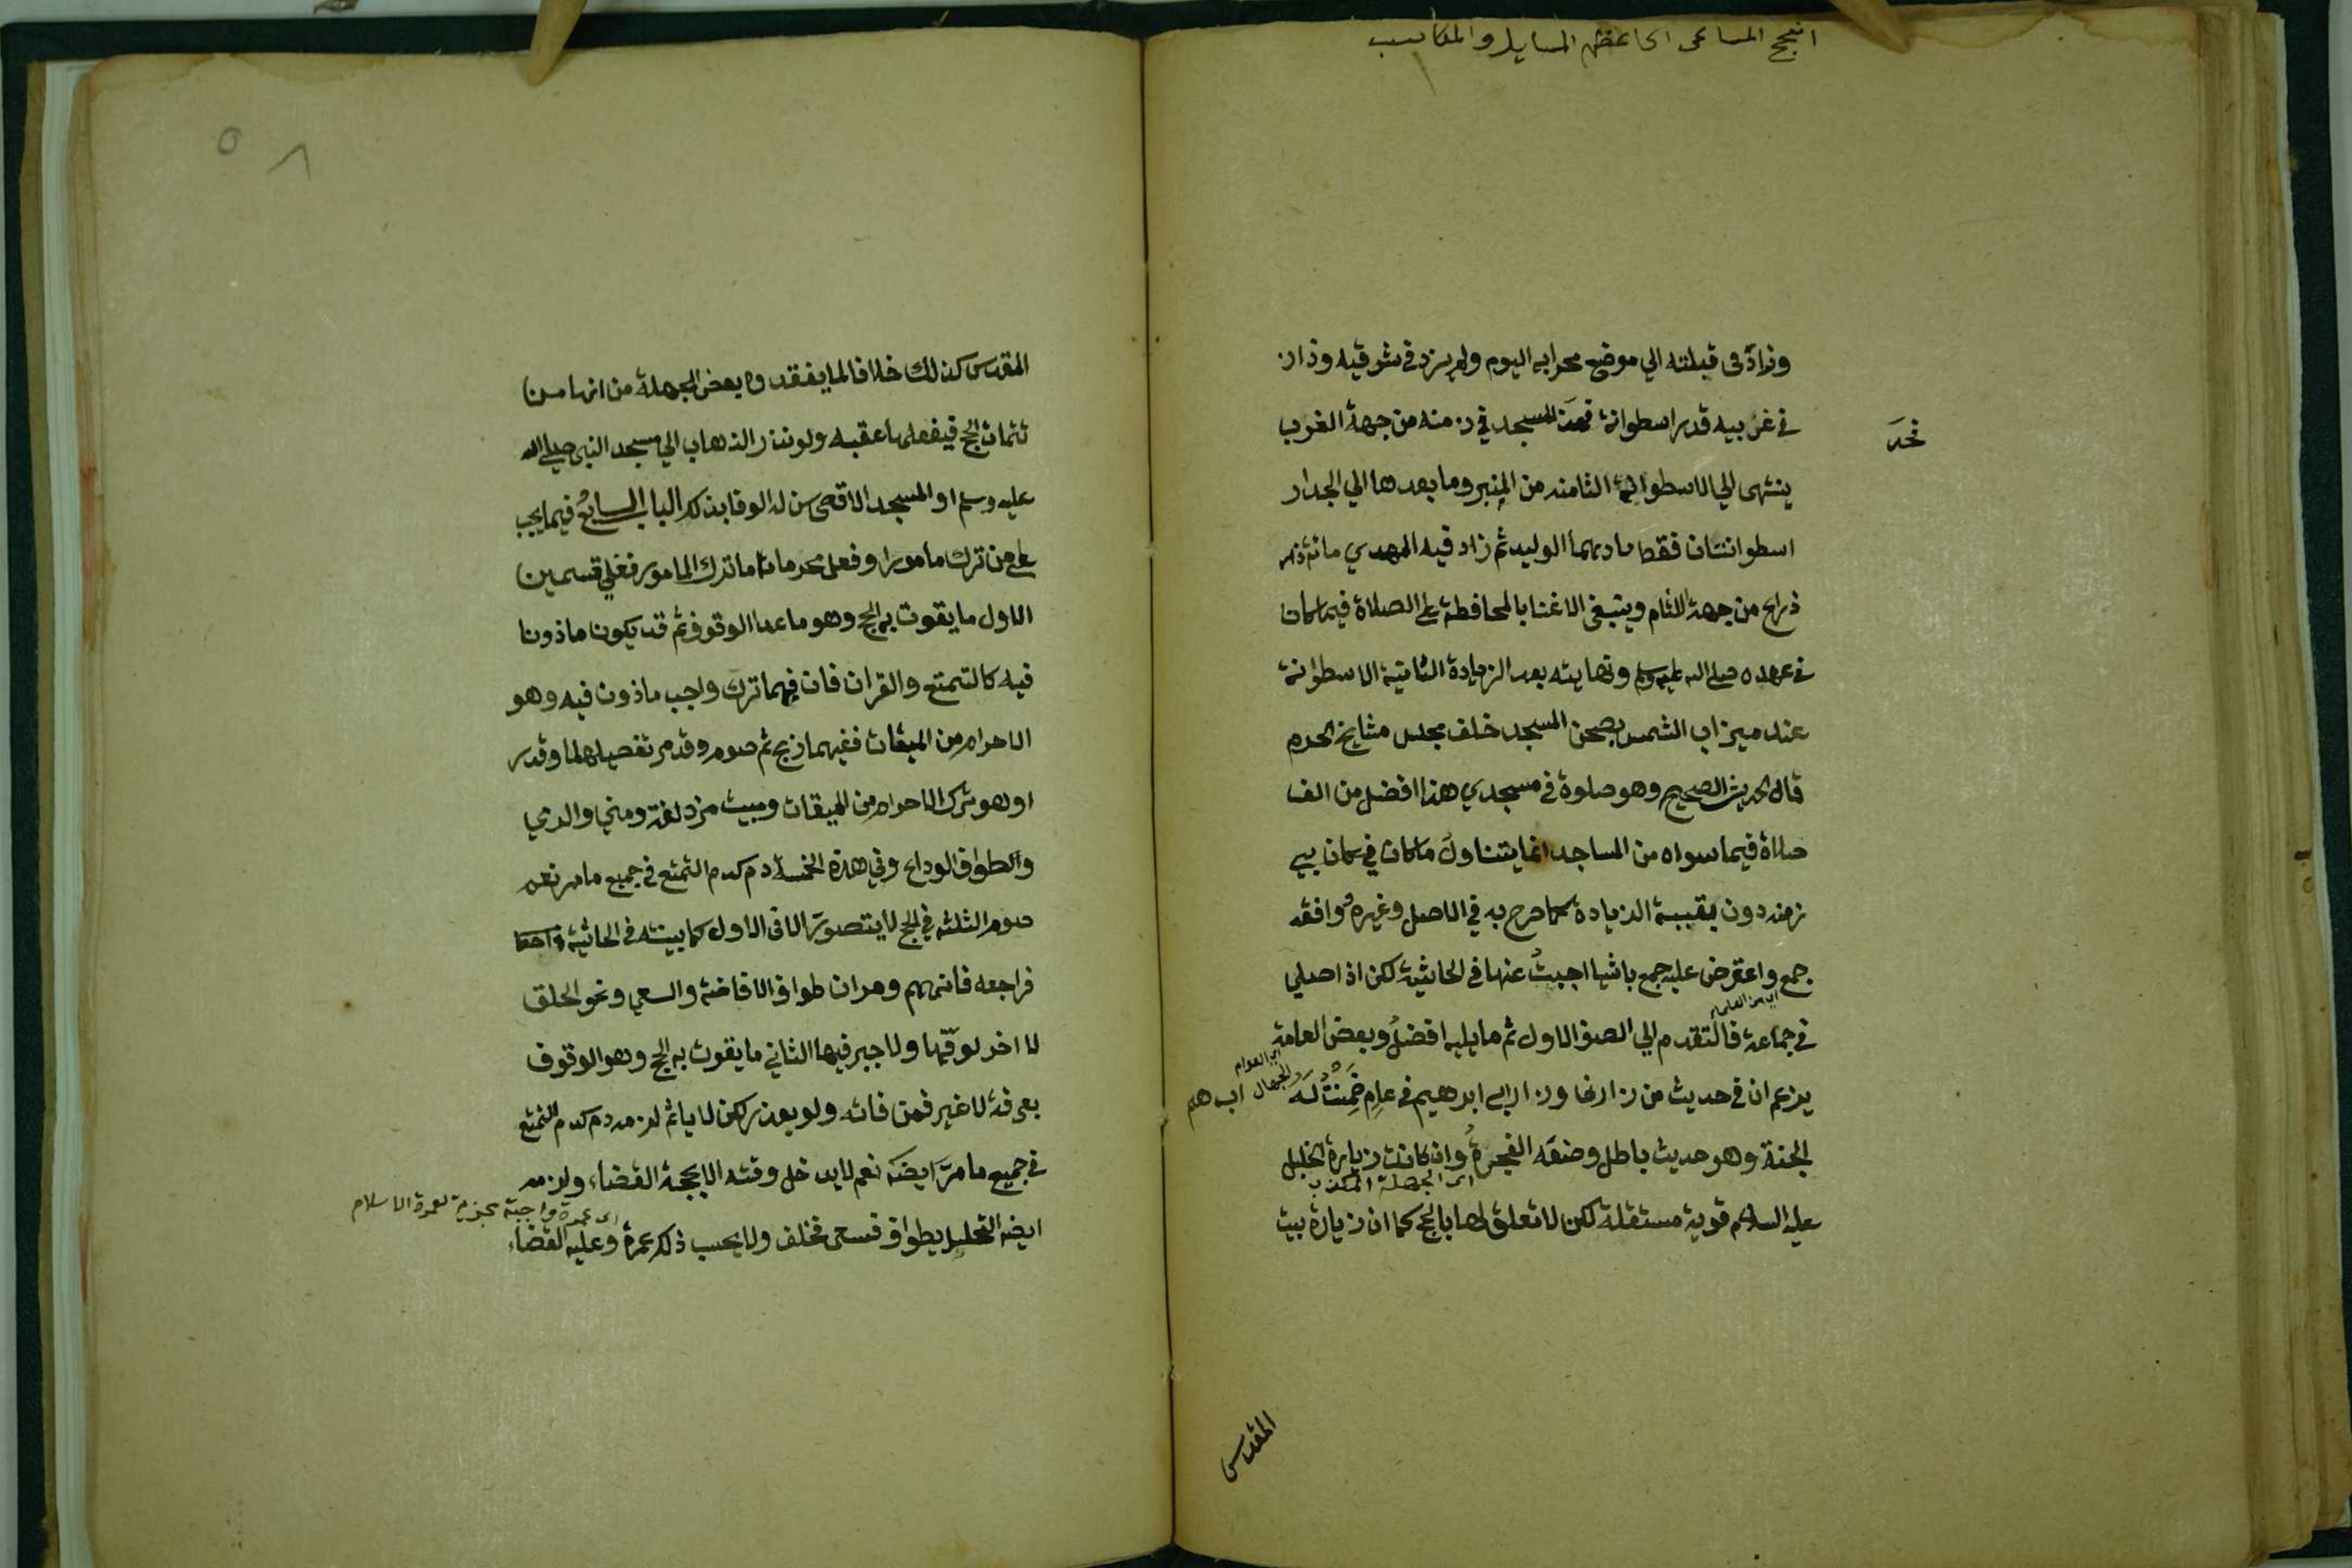 انجح المساعى الى اعظم المسايل والمكاسب
وزاد فى قبلته الي موضع محرابه اليوم ولم يزد في شرقيه وزاد
في غربيه قدر اسطوانة المسجد في زمنه من جهة الغرب
نحد
ينتهى الي الاسطوانة الثامنه من المنبر وما بعدها الي الجدار
اسطوانتان فقط زادهما الوليد ثم زاد فيه المهدي مائة
ذراع من جهة الشام وينبغى الاعتنا بالمحافظة علي الصلاة فيما كان
في عهده صلي الله عليه وسلم ونهايته بعد الزيادة الثانية الاسطوانة
عند ميزاب الشمس بصحن المسجد خلف مجلس مشايخ الحرم
قال الحديث الصحيح وهو صلوة في مسجدي هذا افضل من الف
صلاة فيما سواه من المساجد انما يتناول ما كان في
زمنه دون بقيية الزيادة كما صرح به في الاصل وغيره ووافقه
جمع واعترض عليه جمع باشيا اجبت عنها في الحاشية لكن اذا صلي
اي من العلماء
في جماعة فالتقدم الي الصف الاول ثم ما يليه افضل وبعض العامة
اي العوام والجهال
يزعم ان في حديث من زارنى وزار ابي ابرهيم في عام ضمنت له
الجنة وهو حديث باطل وضعه الفجرة وان كانت زيارة الخليل
اى الجهلة الكذب
عليه السلام قوية مستقلة لكن لا تعلق لها بالحج كما ان زيارة بيت
المقدس
المقدس كذلك خلافا لما يفقد وه بعض الجهلة من انها من
تتمات الحج فيفعلها عقبه ولو نذر الذهاب الي مسجد النبى صلي الله
عليه وسلم او المسجد الاقصى سن له الوفا بذلك الباب السابع فيما يجب
علي من ترك مامورا وفعل محرما اما ترك المامور فعلي قسمين
الاول ما يقوت به الحج وهو ما عدا الوقوف ثم قد يكون ماذونا
فيه كالتمتع والقران فان فيهما ترك واجب ماذون فيه وهو
الاحرام من الميقات ففيهما ذبح ثم صوم وقد مر تفصيلهما وقدر
او هو ترك الاحرام من الميقات ومبيت مزدلفة ومني والرمي
والطواف الوداع وفي هذة الخمسة دم كدم التمتع في جميع ما مر نعم
صوم الثلثه في الحج لا يتصور الا فى الاول كما بينته في الحاشية
فراجعه فانه مهم ومر ان طواف الافاضة والسعي ونحو الحلق
لا اخر لوقتها ولا جبر فيها الثاني ما يقوت به الحج وهو الوقوف
بعرفة لا غير فمن فاته ولو بعذر لكن لا ياثم لزمه دم كدم التمتع
في جميع ما مر ايضه نعم لا يدخل وقته الا بحجة القضاء ولزمه
اى عمرة واجبة بجزيه لعمرة الاسلام
ايضه التحليل بطواف فسعى فحلف ولا يحسب ذلك عمرة وعليه القضاء